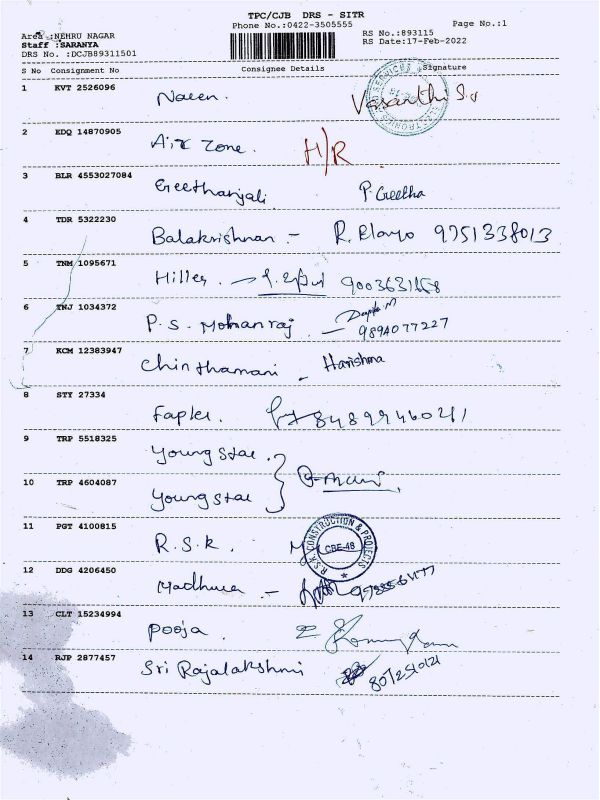 TPC/CJB DRS - SITR
Phone No.:0422-3505555
Page No.:1
Area :NEHRU NAGAR
Staff :SARANYA
DRS No. :DCJB89311501
RS No.:893115
RS Date:17-Feb-2022
S No Consignment No Consignee Details Signature
1 KVT 2526096 Naeen. Vasanthi S.
2 EDQ 14870905 Air Zone. H/R
3 BLR 4553027084 Geethanjali P. Geetha
4 TDR 5322230 Balakrishnan - R. 9751338013
5 TNM 1095671 Hilles.
6 TNJ 1034372 P.S. Mohanraj - 9894077227
7 KCM 12383947 Chinthamani - Harishma
8 STY 27334
9 TRP 5518325 Young Star.
10 TRP 4604087 Young Star
11 PGT 4100815 R.S.K. R.S.K CONSTRUCTION & PROJECTS CBE-48
12 DDG 4206450 Madhura -
13 CLT 15234994 Pooja.
14 RJP 2877457 Sri Rajalakshmi